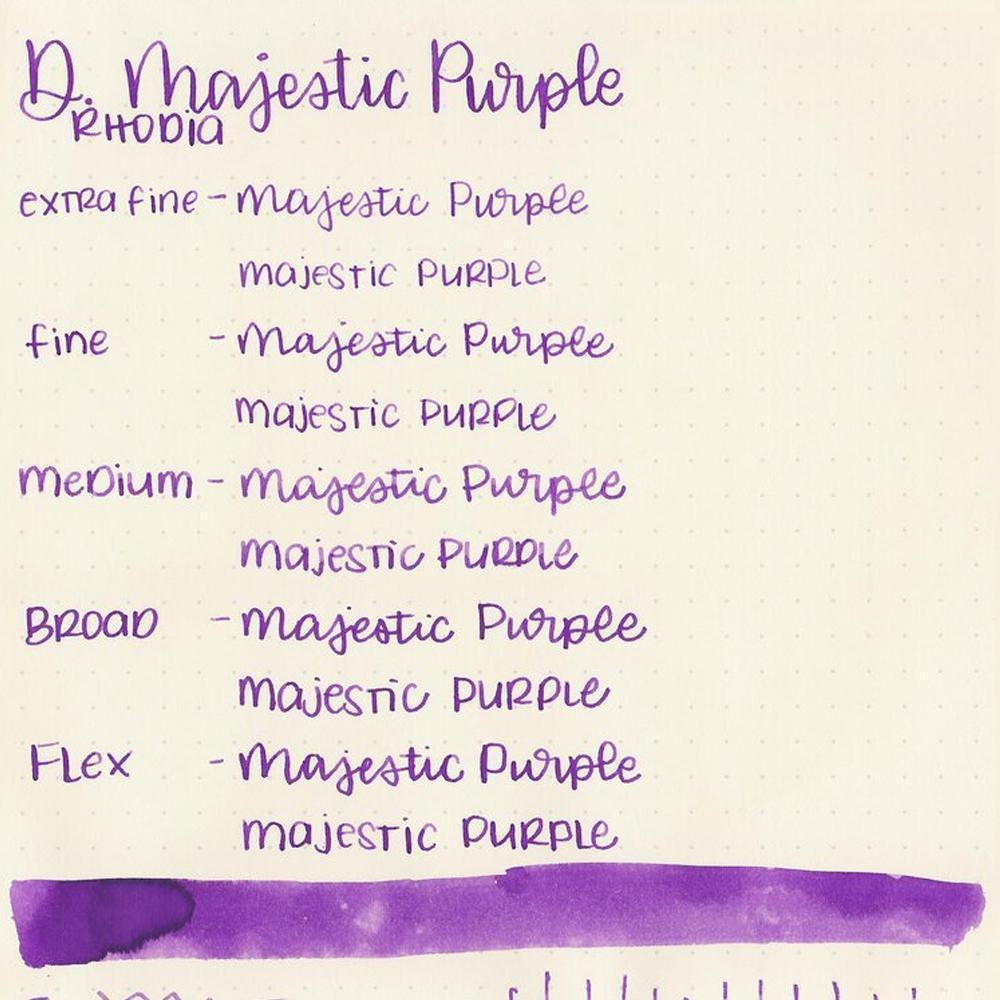 D. Majestic Purple
RHODIA
extra fine - Majestic Purple
majestic PURPLE
fine - Majestic Purple
majestic PURPLE
medium - Majestic Purple
majestic PURPLE
Broad - Majestic Purple
majestic PURPLE
Flex - Majestic Purple
majestic PURPLE